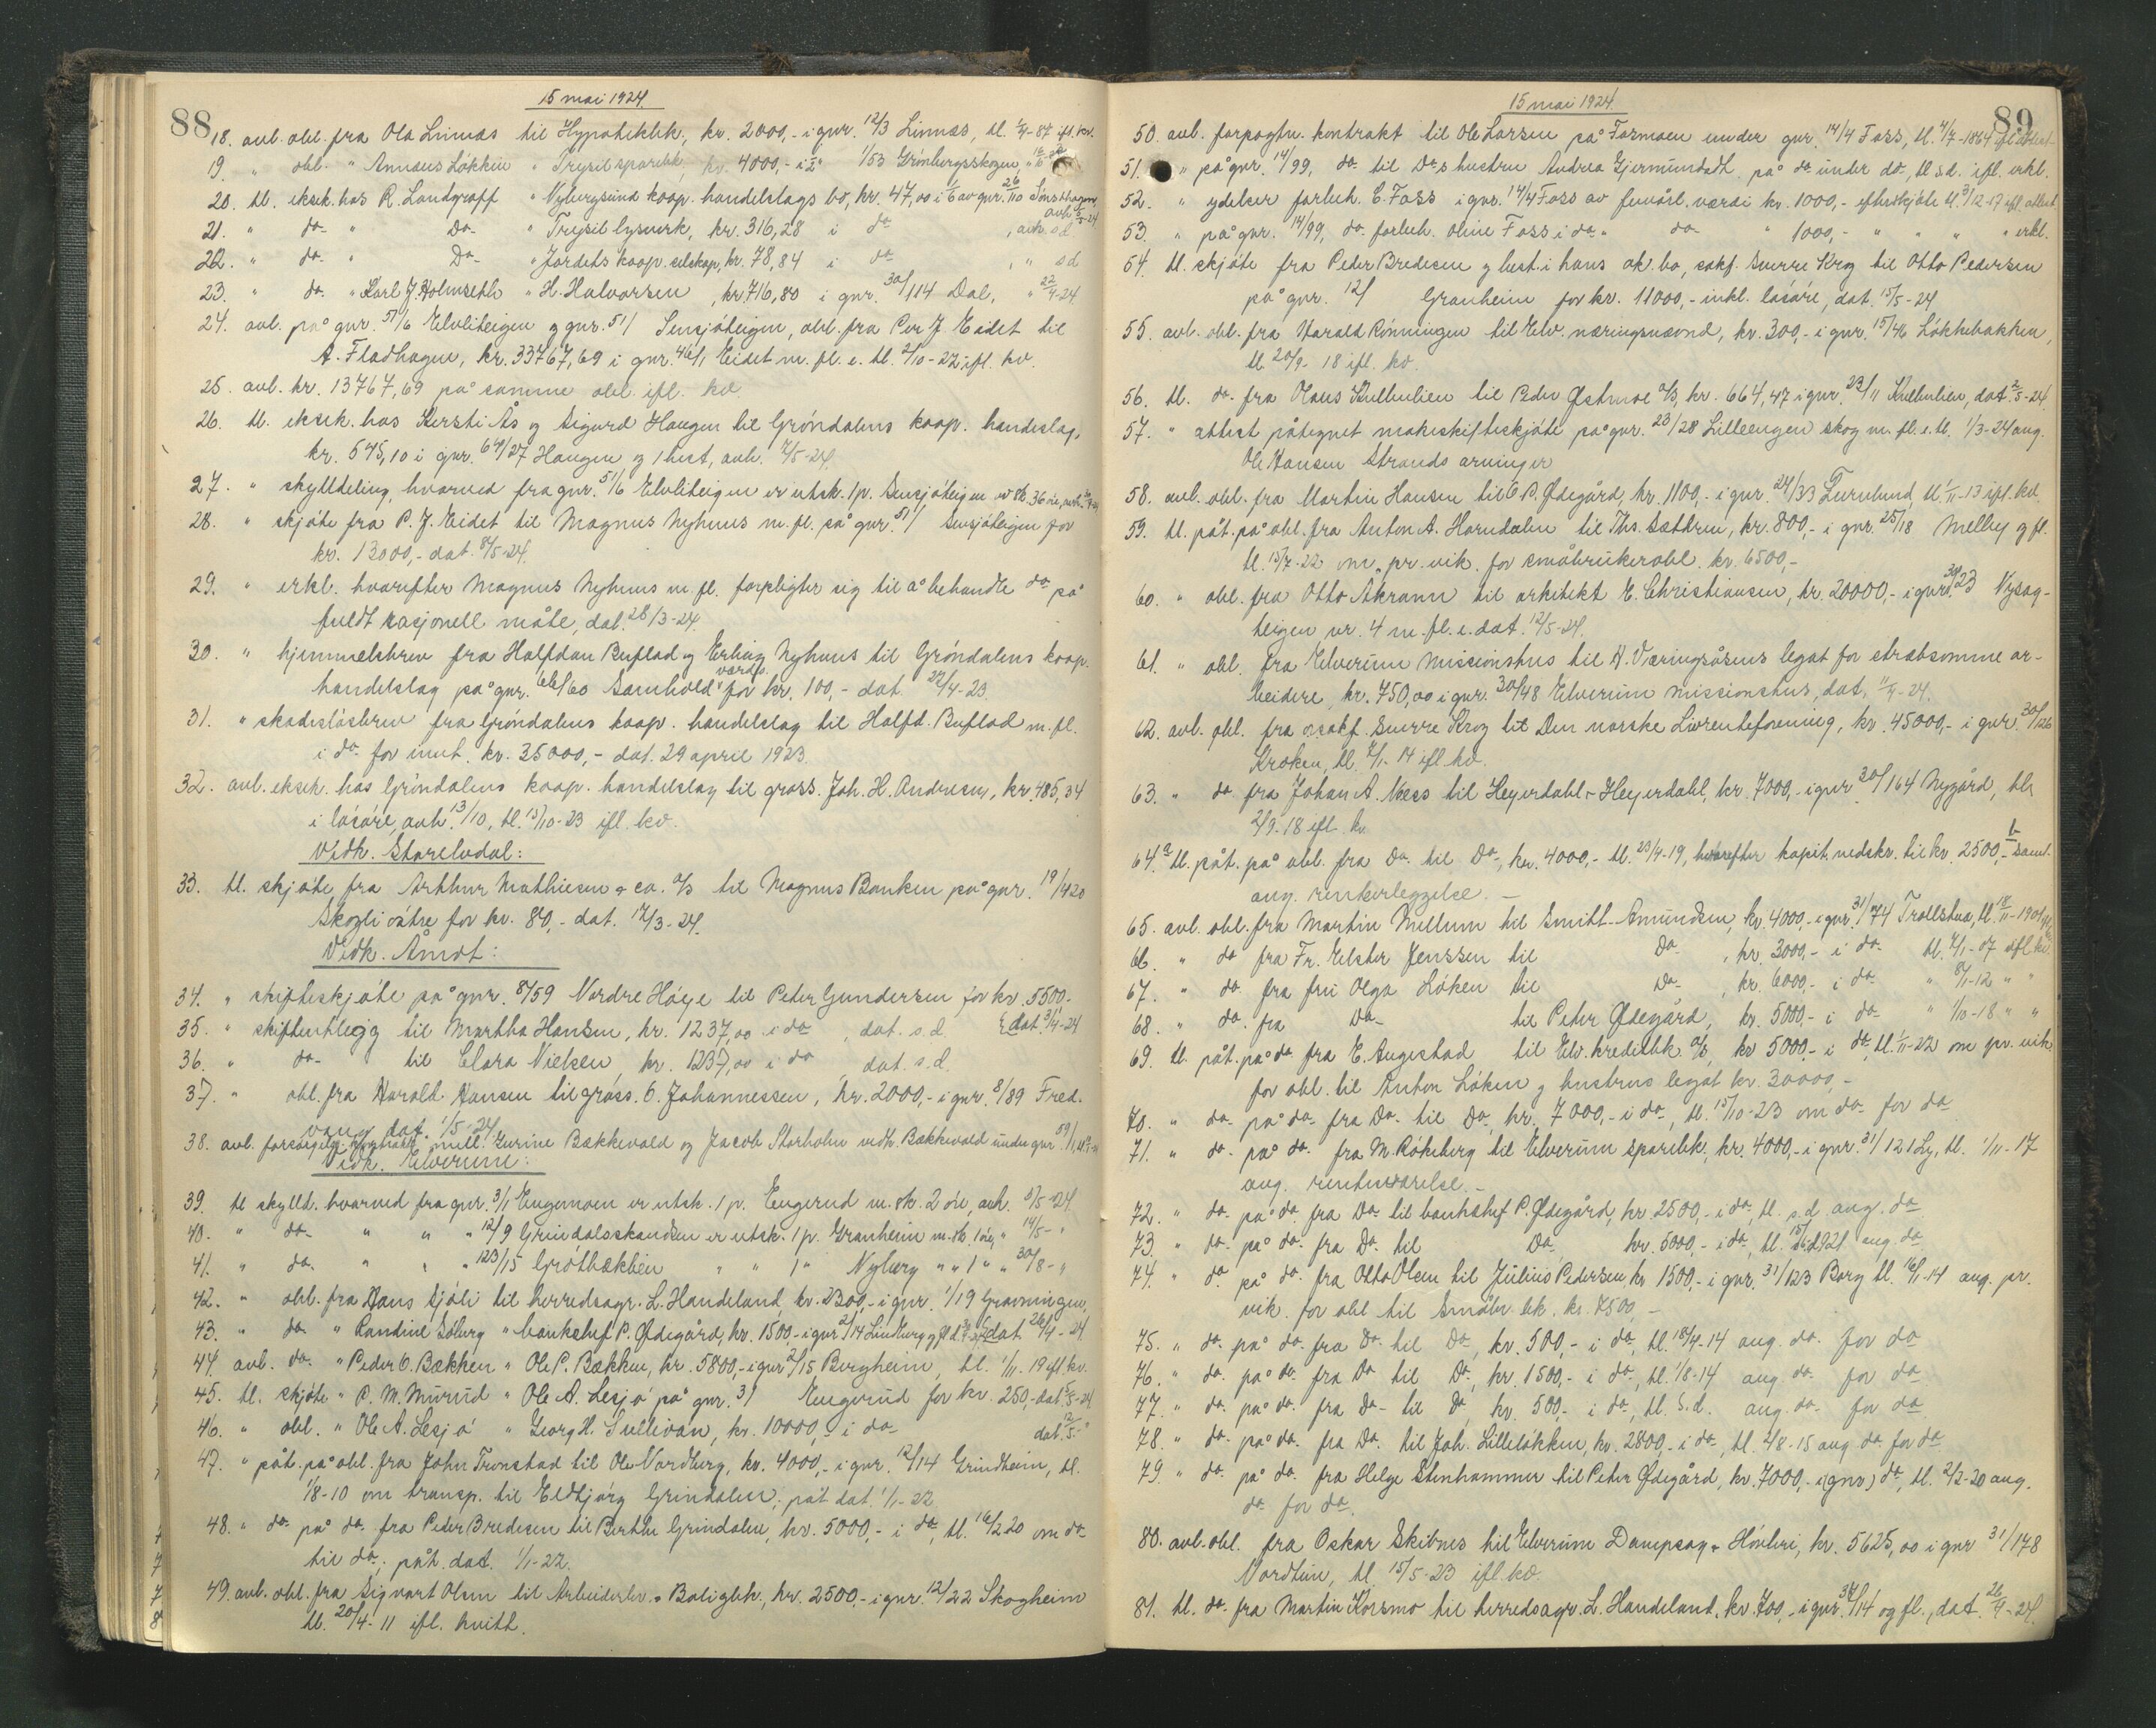 88
15 mai 1924.
18. avl. obl. fra Ola Linnæs til Hypotekbk, kr. 2000,- i gnr. 12/3 Linnæs, tl. -87 ifl. kv.
19. " obl. " Annæus Løkken " Trysil sparebk, kr. 4000,- i 1/53 Grønbergsskogen
20. tl. eksek. hos R. Landgraff " Nybergsund koop. handelslags bo, kr. 47,00 i
21. " do " Do " Trysil lysverk, kr. 316,28 i do , avh. s d
22. " do " Do " Jordets koop. selskap, kr. 78,84 i do , " s d
23. " do. " Karl J. Holmseth " H. Halvorsen, kr. 716,80 i gnr. 30/114 Dal, " 22/4-24
24. avl. på gnr. 51/6 Elvliteigen og gnr. 51/ Sensjøteigen, obl. fra Per J Eidet til
A. Fladhagen, kr. 33767,69 i gnr. 46/1 Eidet m. fl. e. tl. 2/10-22 ifl. kv.
25. avl. kr. 13767,69 på samme obl. ifl. kv
26. tl. eksek. hos Kersti Ås og Sigurd Haugen til Grøndalens koop. handelslag,
kr. 545,10 i gnr. 64/27 Haugen og 1 hest, avh. 7/5-24.
27. " skylddeling, hvorved fra gnr. 51/6 Elvliteigen er utsk. 1 p. Sensjøteigen
28. " skjøte fra P. J. Eidet til Magnus Nyhuus m. fl. på gnr. 51/ Sensjøteigen for
kr. 13000,- dat. 8/5-24.
29. " erkl. hvorefter Magnus Nyhuus m. fl. forpligter sig til å behandle do på
fuldt rasjonell måte, dat. 28/3-24.
30. " hjemmelsbrev fra Halfdan Buflod og Erling Nyhuus til Grøndalens koop.
handelslag på gnr. 66/60 Samhold værdi for kr. 100,- dat. 29/4-23
31. " skadesløsbrev fra Grøndalens koop. handelslag til Halfd. Buflod m. fl.
i do for inut. kr. 35000,- dat. 29 april 1923
32. avl. eksek. hos Grøndalens koop. handelslag til gross. Joh. H. Andresen, kr. 485,34
i løsøre, avh. 13/10, tl. 15/10-23 ifl. kv.
Vedk. Storelvdal:
33. tl. skjøte fra Arthur Mathiesen & co. a/s til Magnus Banken på gnr. 19/420
Skogli østre for kr. 80,- dat. 17/3-24.
Vedk. Åmot:
34. " skifteskjøte på gnr. 8/59 Nordre Høye til Peter Gundersen for kr. 5500.-
35. " skifteutlegg til Martha Hansen, kr. 1237,00 i do , dat. s. d. dat. 3/4-24
36. " do til Clara Nielsen, kr. 1237,00 i do dat. s. d.
37. " obl. fra Harald Hansen til gross. O. Johannessen, kr. 2000,- i gnr. 8/89 Fred.
vang dat. 1/5-24
38. avl. mell. Gurine Bækkevold og Jacob Storholm vedk. Bækkevold under gnr.
Vedk. Elverum:
39. tl. skylld. hvorved fra gnr. 3/1 Engemoen er utsk. 1 p. Engerud m. sk. 2 øre, avh. 5/5-24.
40. " do " " " 12/9 Grindalsskandsen er utsk. 1 p. Granheim m. sk. 1 øre, " 14/5- "
41. " do " " " 123/15 Grøtbækken " " 1 " Nyberg " " 1 " " 30/8- "
42. " obl. fra Hans Sjøli til herredsagr. L. Handeland, kr. 2300,- i gnr. 1/19 Gravningen,
43. " do " Randine Søberg " bankchef P. Ødegård, kr. 1500.- i gnr. 2/14 Lindberg dat 26/4-24
44. avl. do. " Peder O. Bækken " Ole P. Bækken, kr. 5800,- i gnr. 2/15 Bergheim, tl. 1/11.19 ifl. kv.
45. tl. skjøte " P. M. Murud " Ole A. Lesjø på gnr. 3/ Engerud for kr. 250,- dat. 5/5-24
46. " obl. " Ole A. Lesjø " Georg H. Sullivan, kr. 10000,- i do dat. 12/5- "
47. " påt. på obl. fra John Tronstad til Ole Nordberg, kr. 4000,- i gnr. 12/14 Grindheim, tl.
1/8-10 om transp. til Eldbjørg Grindalen, påt dat. 1/1-22
48. " do på do. fra Peder Bredesen til Berthe Grindalen, kr. 5000,- i do, tl. 16/2 20 om do
til do; påt. dat. 1/1-22.
49. avl. obl. fra Sigvart Olsen til Arbeiderbr. & Boligbk., kr. 2500,- i gnr. 12/22 Skogheim
tl. 20/4-11 ifl. kvitt.
89
15 mai 1924.
50. avl. forpagtn. kontrakt til Ole Larsen på Formoen under gnr. 14/4 Foss, tl. 4/7-1864
51. " på gnr. 14/99, do til Do s hustru Andrea Gjermundsdt. på do under do, tl s.d. ifl. erkl.
52. " ydelser forbeh. E. Foss i gnr. 14/4 Foss av femårl. værdi kr. 1000,- efter skjøte tl. 3/12-17 ifl. attest
53. " på gnr. 14/99, do. forbeh. Oline Foss i do " do " 1000,- " " " " erkl.
54. tl. skjøte fra Peder Bredesen og best. i hans ok. bo, sakf. Sverre Krog til Otto Pedersen
på gnr. 12/ Granheim for kr. 11000,- inkl. løsøre, dat. 15/5-24
55. avl. obl. fra Harald Rønningen til Elv. næringsnævnd, kr. 300,- i gnr. 15/46 Løkkebakken,
tl. 20/9-18 ifl. kv.
56. tl. do. fra Olaus Kulbulien til Peder Østmoe a/s, kr. 664,47 i gnr. 23/11 Kulbulien, dat. 2/5-24.
57. " attest påtegnet makeskifteskjøte på gnr. 20/28 Lilleengen skog m. fl. e. tl. 1/3-24 ang.
Ole Hansen Strands arvinger
58. avl. obl. fra Martin Hansen til O. P. Ødegård, kr. 1100,- i gnr. 24/33 Furulund, tl. 1/11-13 ifl. kv.
59. tl. påt. på obl. fra Anton A. Horndalen til Ths. Sætren, kr. 800,- i gnr. 25/18 Melby og fl.
tl. 15/7-22 om pr. vik. for småbrukerobl. kr. 6500,-
60. " obl. fra Otto Akrann til arkitekt E. Christiansen, kr. 20000,- i gnr. 30/23 Nysag-
teigen nr. 4 m. fl. e. dat. 12/5-24.
61. " obl. fra Elverum Missionshus til H. Væringsåsens legat for stræbsomme ar-
beidere, kr. 750,00 i gnr. 30/48 Elverum missionshus, dat. 11/4-24.
62. avl. obl. fra o.sakf. Sverre Krog til Den norske Livrenteforening, kr. 45000,- i gnr. 30/126
Kroken, tl. 7/1-14 ifl. kv.
63. " do fra Johan A. Næss til Heyerdahl & Heyerdahl, kr. 7000,- i gnr 30/164 Nygård, tl.
2/9-18 ifl. kv.
64.a tl. påt. på obl. fra Do. til Do, kr. 4000,- tl. 23/4-19, hvorefter kapit. nedskr. til kr. 2500,- b saml.
ang. renterlegzelse. -
65. avl. obl. fra Martin Mellum til Smitt-Amundsen, kr. 4000,- i gnr. 31/74 Trollstua, tl. 18/11-1901
66. " do fra Fr. Elster Jenssen til Do , kr. 3000,- i do tl. 7/1-07 ifl. kv.
67. " do fra fru Olga Løken til Do , kr. 6000,- i do " 8/1-12 " "
68. " do. fra Do til Peter Ødegård, kr. 5000,- i do " 1/10-18 " "
69. tl. påt. på do fra E. Augestad til Elv. kreditbk. a/s, kr 5000,- i do, tl. 1/11-22 om pr. vik.
for obl. til Anton Løken og hustrus legat kr. 30000,-
70. " do på do. fra Do til Do, kr. 7000,- i do, tl. 15/10-23 om do for do
71. " do. på do. fra M. Røkeberg til Elverum sparebk., kr. 4000,- i gnr. 31/121 Ly, tl. 1/11-17
ang. renteværelse. -
72. " do. på do. fra Do til bankchef P. Ødegård, kr. 2500,- i do, tl. s.d. ang. do
73. " do. på do. fra Do til Do, kr. 5000,- i do, tl. 1921 ang. do
74. " do på do. fra Otto Olsen til Julius Pedersen kr 1500,- i gnr. 31/123 Borg tl. 16/1-14 ang. pr.
vik. for obl til Småbr. bk. kr. 7500,-
75. " do. på do. fra Do til Do, kr. 500,- i do, tl. 18/4-14 ang. do. for do
76. " do. på do. fra Do til Do, kr. 1500,- i do, tl. 1/8-14 ang. do for do
77. " do. på do. fra Do til Do, kr. 500,- i do, tl. s.d. ang. do for do
78. " do. på do. fra Do. til Joh. Lilleløkken, kr. 2800,- i do, tl. 4/8-15 ang. do for do
79. " do. på do. fra Helge Stenhammer til Peter Ødegård, kr. 7000,- i (gnr) do, tl. 2/2-20 ang.
do for do.
80. avl. obl. fra Oskar Skibnes til Elverum Dampsag & Høvleri, kr. 5625,00 i gnr 31/178
Nordtun, tl. 15/5-23 ifl. kv.
81. tl. do. fra Martin Korsmo til herredsagr. L. Handeland, kr. 700,- i gnr. /14 og fl., dat. 26/4-24.